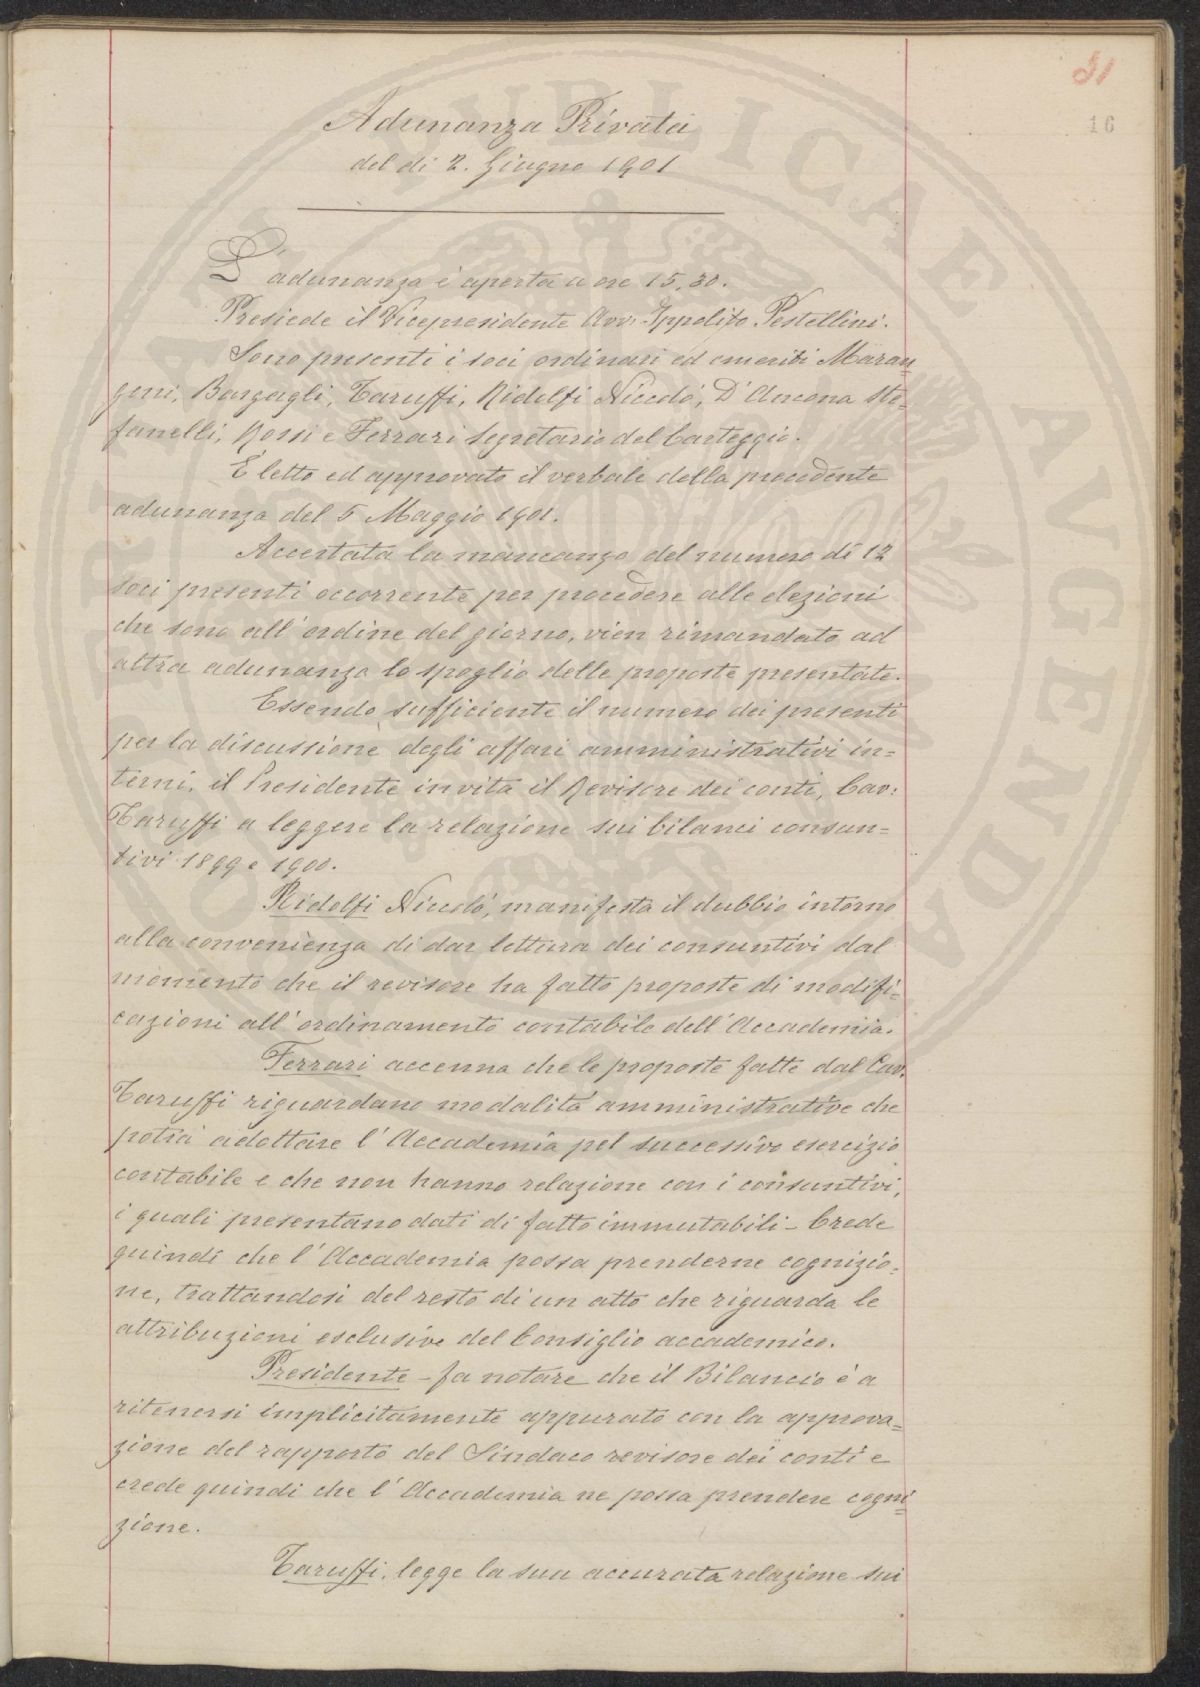 31
16
Adunanza Privata
del di 2. Giugno 1901
L'adunanza è aperta a ore 15,30.
Presiede il Vicepresidente Avv. Ippolito Pestellini.
Sono presenti i soci ordinari ed emeriti Maran=
goni, Bargagli, Taruffi, Ridolfi Niccolò, D'Ancona Ste=
fanelli, Rossi e Ferrari Segretario del Carteggio.
È letto ed approvato il verbale della precedente
adunanza del 5 Maggio 1901.
Accertata la mancanza del numero di 12
soci presenti occorrente per procedere alle elezioni
che sono all'ordine del giorno, vien rimandato ad
altra adunanza lo spoglio delle proposte presentate.
Essendo sufficiente il numero dei presenti
per la discussione degli affari amministrativi in=
terni, il Presidente invita il Revisore dei conti, Cav:
Taruffi a leggere la relazione sui bilanci consun=
tivi 1899 e 1900.
Ridolfi Niccolò, manifesta il dubbio intorno
alla convenienza di dar lettura dei consuntivi dal
momento che il revisore ha fatto proposte di modifi=
cazioni all'ordinamento contabile dell'Accademia.
Ferrari accenna che le proposte fatte dal Cav.
Taruffi riguardano modalità amministrative che
potrà adottare l'Accademia pel successivo esercizio
contabile e che non hanno relazione con i consuntivi,
i quali presentano dati di fatto immutabili - Crede
quindi che l'Accademia possa prenderne cognizio=
ne, trattandosi del resto di un atto che riguarda le
attribuzioni esclusive del Consiglio accademico.
Presidente - fa notare che il Bilancio è a
ritenersi implicitamente appurato con la approva=
zione del rapporto del Sindaco revisore dei conti e
crede quindi che l'Accademia ne possa prendere cogni=
zione.
Taruffi. legge la sua accurata relazione sui